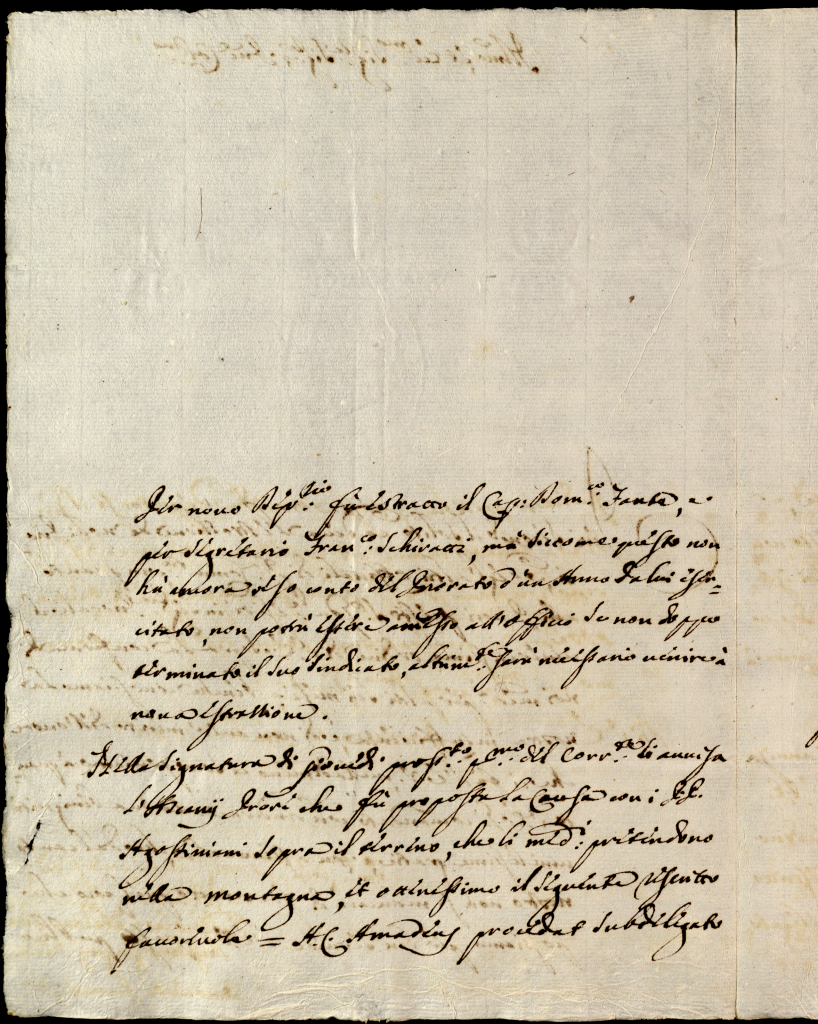 Per novo Dep.rio fù estratto il Cap: Dom.co Fante, e
per Segretario Fran.co Schiratti, mà siccome questo non
hà ancora reso conto del Priorato d'un Anno da lui eser=
citato, non potrà essere amesso all'Officio se non doppo
terminato il suo Sindicato, altrim.te sarà necessario venire à
nova estrattione.
Nella Signatura di Giovedì pross.to p.mo del corr.te ci avvisa
l'Ascanij Pròri che fù proposta la Causa con i PP.
Agostiniani sopra il terreno, che li med.i pretendono
nella montagna, et ottenessimo il seguente rescritto
favorevole = A. C. Amadeus procedat subdelegato